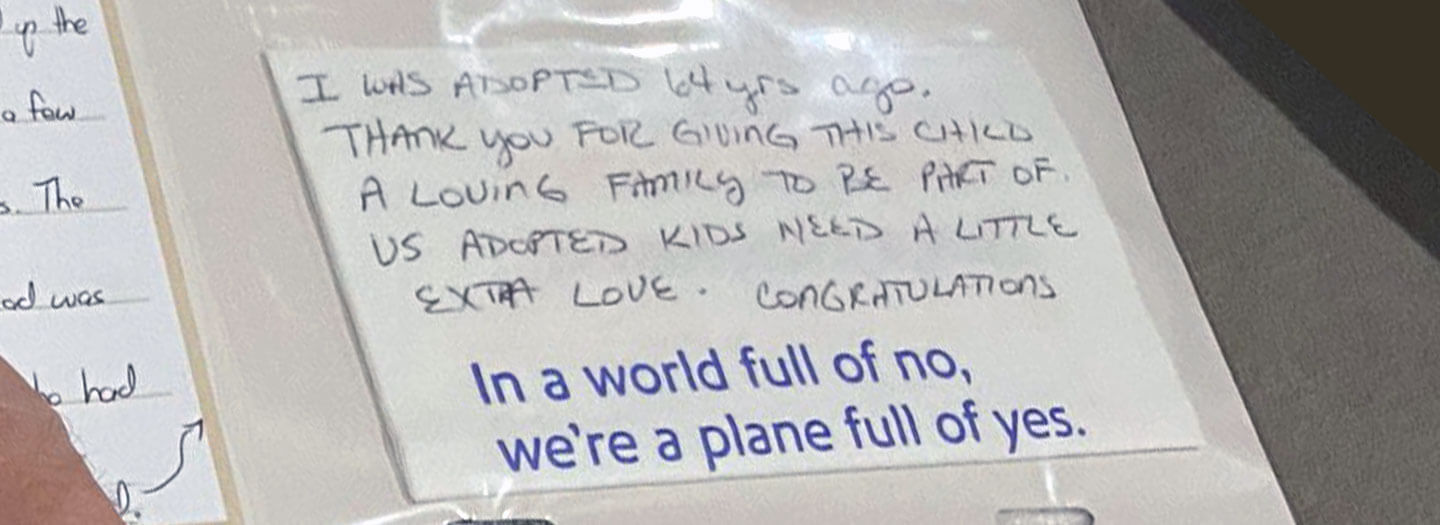 up the
a few
s. The
od was
had
I WAS ADOPTED 64 yrs ago.
THANK YOU FOR GIVING THIS CHILD
A LOVING FAMILY TO BE PART OF.
US ADOPTED KIDS NEED A LITTLE
EXTRA LOVE. CONGRATULATIONS
In a world full of no,
we're a plane full of yes.